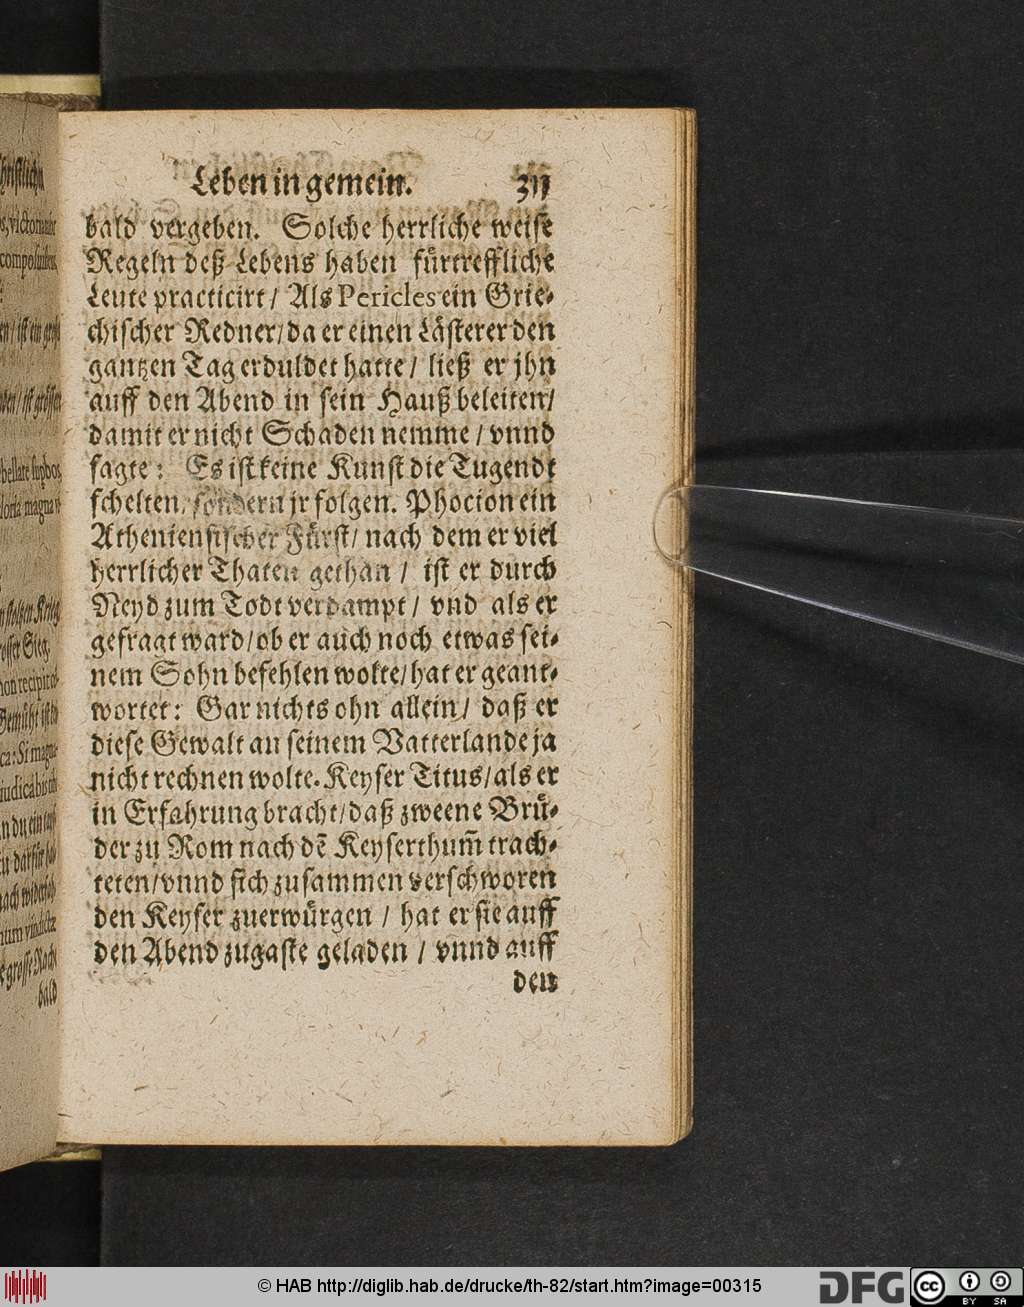 Leben in gemein. 311
bald vergeben. Solche herrliche weise
Regeln deß Lebens haben fürtreffliche
Leute practicirt / Als Pericles ein Grie-
chischer Redner / da er einen Lästerer den
gantzen Tag erduldet hatte / ließ er jhn
auff den Abend in sein Hauß beleiten /
damit er nicht Schaden nemme / vnnd
sagte: Es ist keine Kunst die Tugendt
schelten, sondern jr folgen. Phocion ein
Atheniensischer Fürst / nach dem er viel
herrlicher Thaten gethan / ist er durch
Neyd zum Todt verdampt / vnd als er
gefragt ward / ob er auch noch etwas sei-
nem Sohn befehlen wolte / hat er geant-
wortet: Gar nichts ohn allein / daß er
diese Gewalt an seinem Vatterlande ja
nicht rechnen wolte. Keyser Titus / als er
in Erfahrung bracht / daß zweene Brü-
der zu Rom nach dē Keyserthum̄ trach-
teten / vnnd sich zusammen verschworen
den Keyser zuerwürgen / hat er sie auff
den Abend zugaste geladen / vnnd auff
den
© HAB http://diglib.hab.de/drucke/th-82/start.htm?image=00315
DFG
cc BY SA